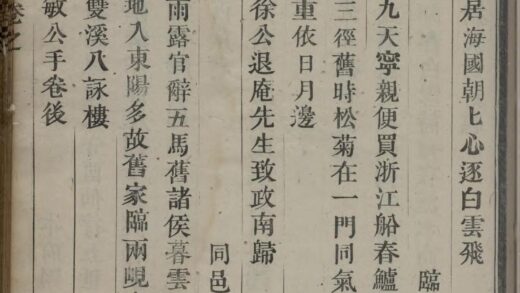 居海國朝匕心逐白雲飛
臨
九天寧親便買浙江船春鱸
三徑舊時松菊在一門同氣
重依日月邊
徐公退庵先生致政南歸
同邑
雨露官辭五馬舊諸侯暮雲
地入東陽多故舊家臨兩峴
雙溪八詠樓
敏公手卷後
卷之